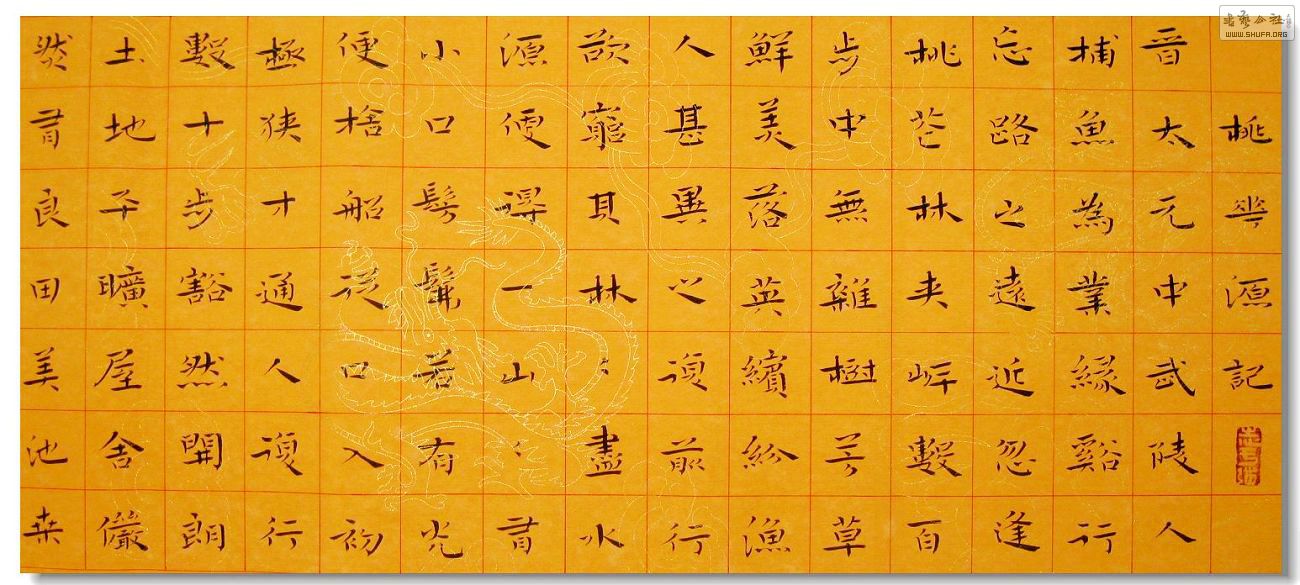 桃華源記
晉太元中武陵人
捕魚為業緣谿行
忘路之遠近忽逢
桃花林夾岸數百
步中無雜樹芳草
鮮美落英繽紛漁
人甚異之復前行
欲窮其林〻盡水
源便得一山〻有
小口髣髴若有光
便捨船從口入初
極狹才通人復行
數十步豁然開朗
土地平曠屋舍儼
然有良田美池桑
书艺公社
WWW.SHUFA.ORG